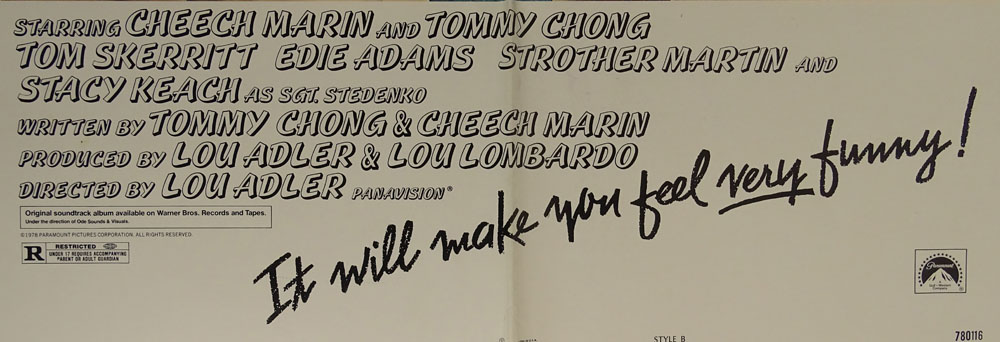 STARRING CHEECH MARIN AND TOMMY CHONG
TOM SKERRITT EDIE ADAMS STROTHER MARTIN AND
STACY KEACH AS SGT. STEDENKO
WRITTEN BY TOMMY CHONG & CHEECH MARIN
PRODUCED BY LOU ADLER & LOU LOMBARDO
DIRECTED BY LOU ADLER PANAVISION®
Original soundtrack album available on Warner Bros. Records and Tapes.
Under the direction of Ode Sounds & Visuals.
©1978 PARAMOUNT PICTURES CORPORATION. ALL RIGHTS RESERVED.
R RESTRICTED
UNDER 17 REQUIRES ACCOMPANYING
PARENT OR ADULT GUARDIAN
It will make you feel very funny!
Paramount
A
Gulf+Western
Company
STYLE B
780116